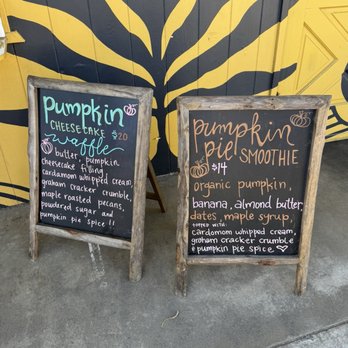 pumpkin
CHEESECAKE $20
waffle
butter, pumpkin
cheesecake filling,
cardamom whipped cream,
graham cracker crumble,
maple roasted pecans,
powdered sugar and
pumpkin pie spice !!
pumpkin
pie! SMOOTHIE
$14
organic pumpkin,
banana, almond butter,
dates, maple syrup,
topped with:
cardomom whipped cream,
graham cracker crumble
& pumpkin pie spice